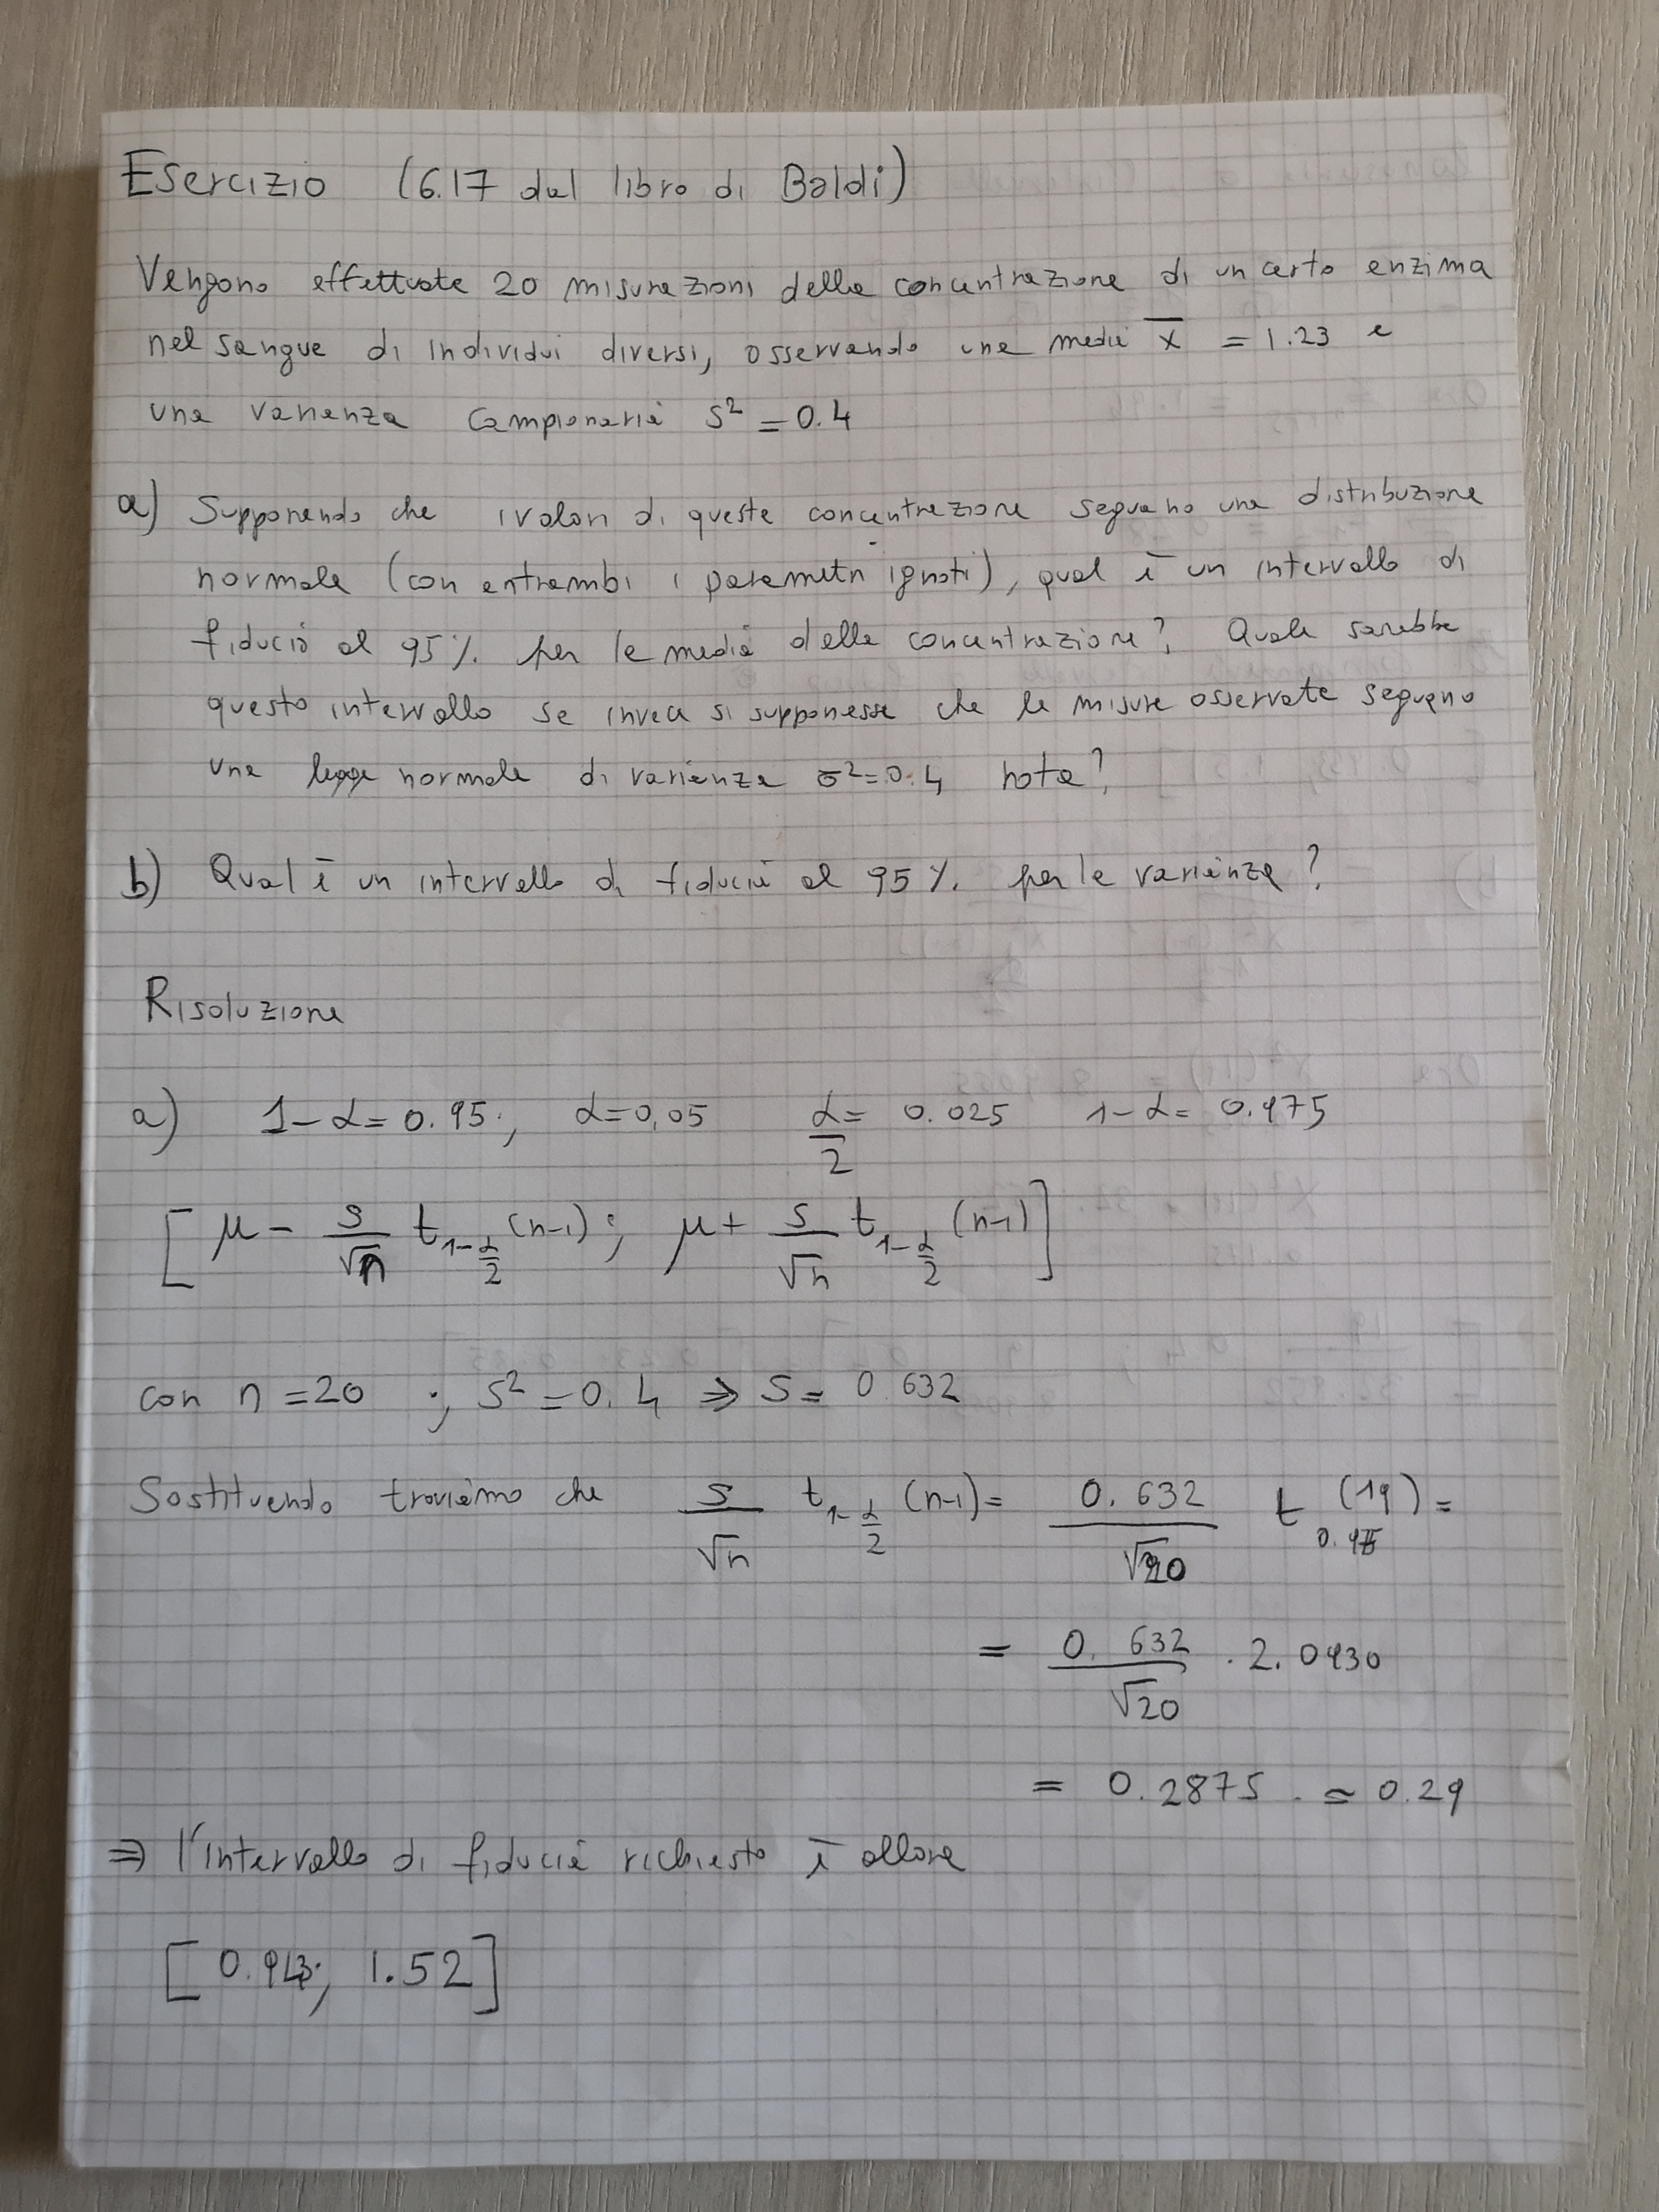 Esercizio (6.17 dal libro di Baldi)
Vengono effettuate 20 misurazioni della concentrazione di un certo enzima
nel sangue di individui diversi, osservando una media x̄ = 1.23 e
una varianza campionaria s² = 0.4
a) Supponendo che i valori di questa concentrazione seguano una distribuzione
normale (con entrambi i parametri ignoti), qual è un intervallo di
fiducia al 95% per la media della concentrazione? Quale sarebbe
questo intervallo se invece si supponesse che le misure osservate seguano
una legge normale di varianza σ²=0.4 nota?
b) Qual è un intervallo di fiducia al 95% per la varianza?
Risoluzione
a) 1-α = 0.95; α=0,05 α/2 = 0.025 1-α = 0.975
[μ - s/√n t_{1-α/2} (n-1); μ + s/√n t_{1-α/2} (n-1)]
con n = 20 ; s² = 0.4 ⇒ s = 0.632
Sostituendo troviamo che s/√n t_{1-α/2} (n-1) = 0.632/√20 t_{0.975} (19) =
= 0.632/√20 · 2.0930
= 0.2875 ≃ 0.29
⇒ l'intervallo di fiducia richiesto è allora
[0.94; 1.52]